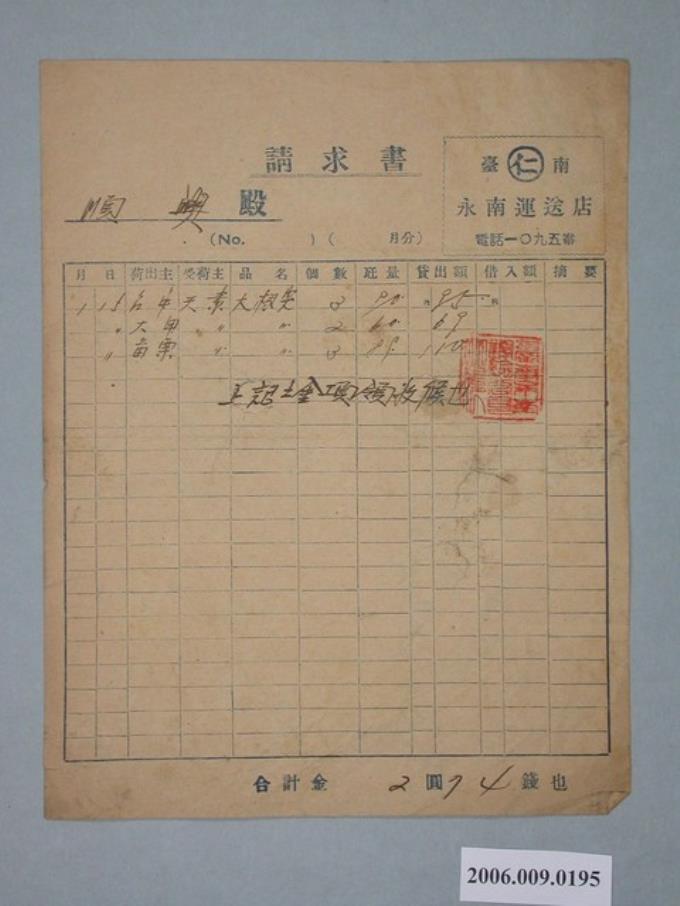 請求書
臺 仁 南
永南運送店
電話一〇九五番
順興 殿
(No. ) ( 月分)
月 日 荷出主 受荷主 品名 個數 斤量 貸出額 借入額 摘要
1 15 天素 大根 3 90 95
〃 大甲 〃 〃 2 60 69
〃 苗栗 〃 〃 3 110
上記金項領收候也
合計金 2圓74錢也
2006.009.0195